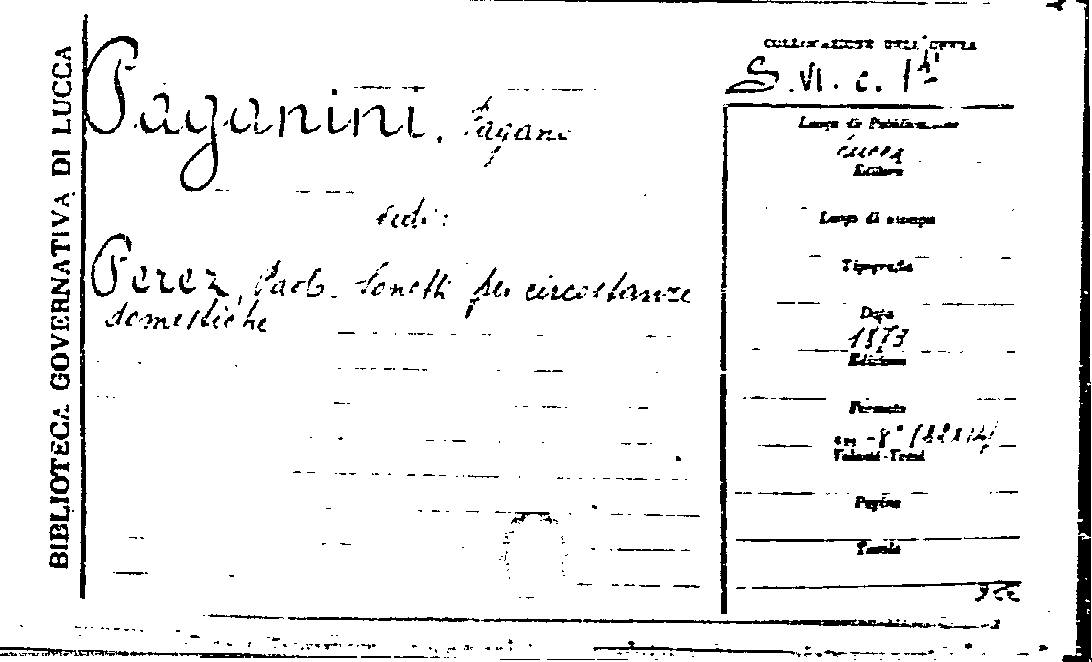 BIBLIOTECA GOVERNATIVA DI LUCCA
Paganini, Pagano
vedi:
Perez, Paolo. Sonetti per circostanze
domestiche
COLLOCAZIONE DELL'OPERA
S. VI. c. 14
Luogo di Pubblicazione
Lucca
Editore
Luogo di stampa
Tipografia
Data
1873
Edizione
Formato
cm - 8° (22x14)
Volumi-Tomi
Pagine
Tavole